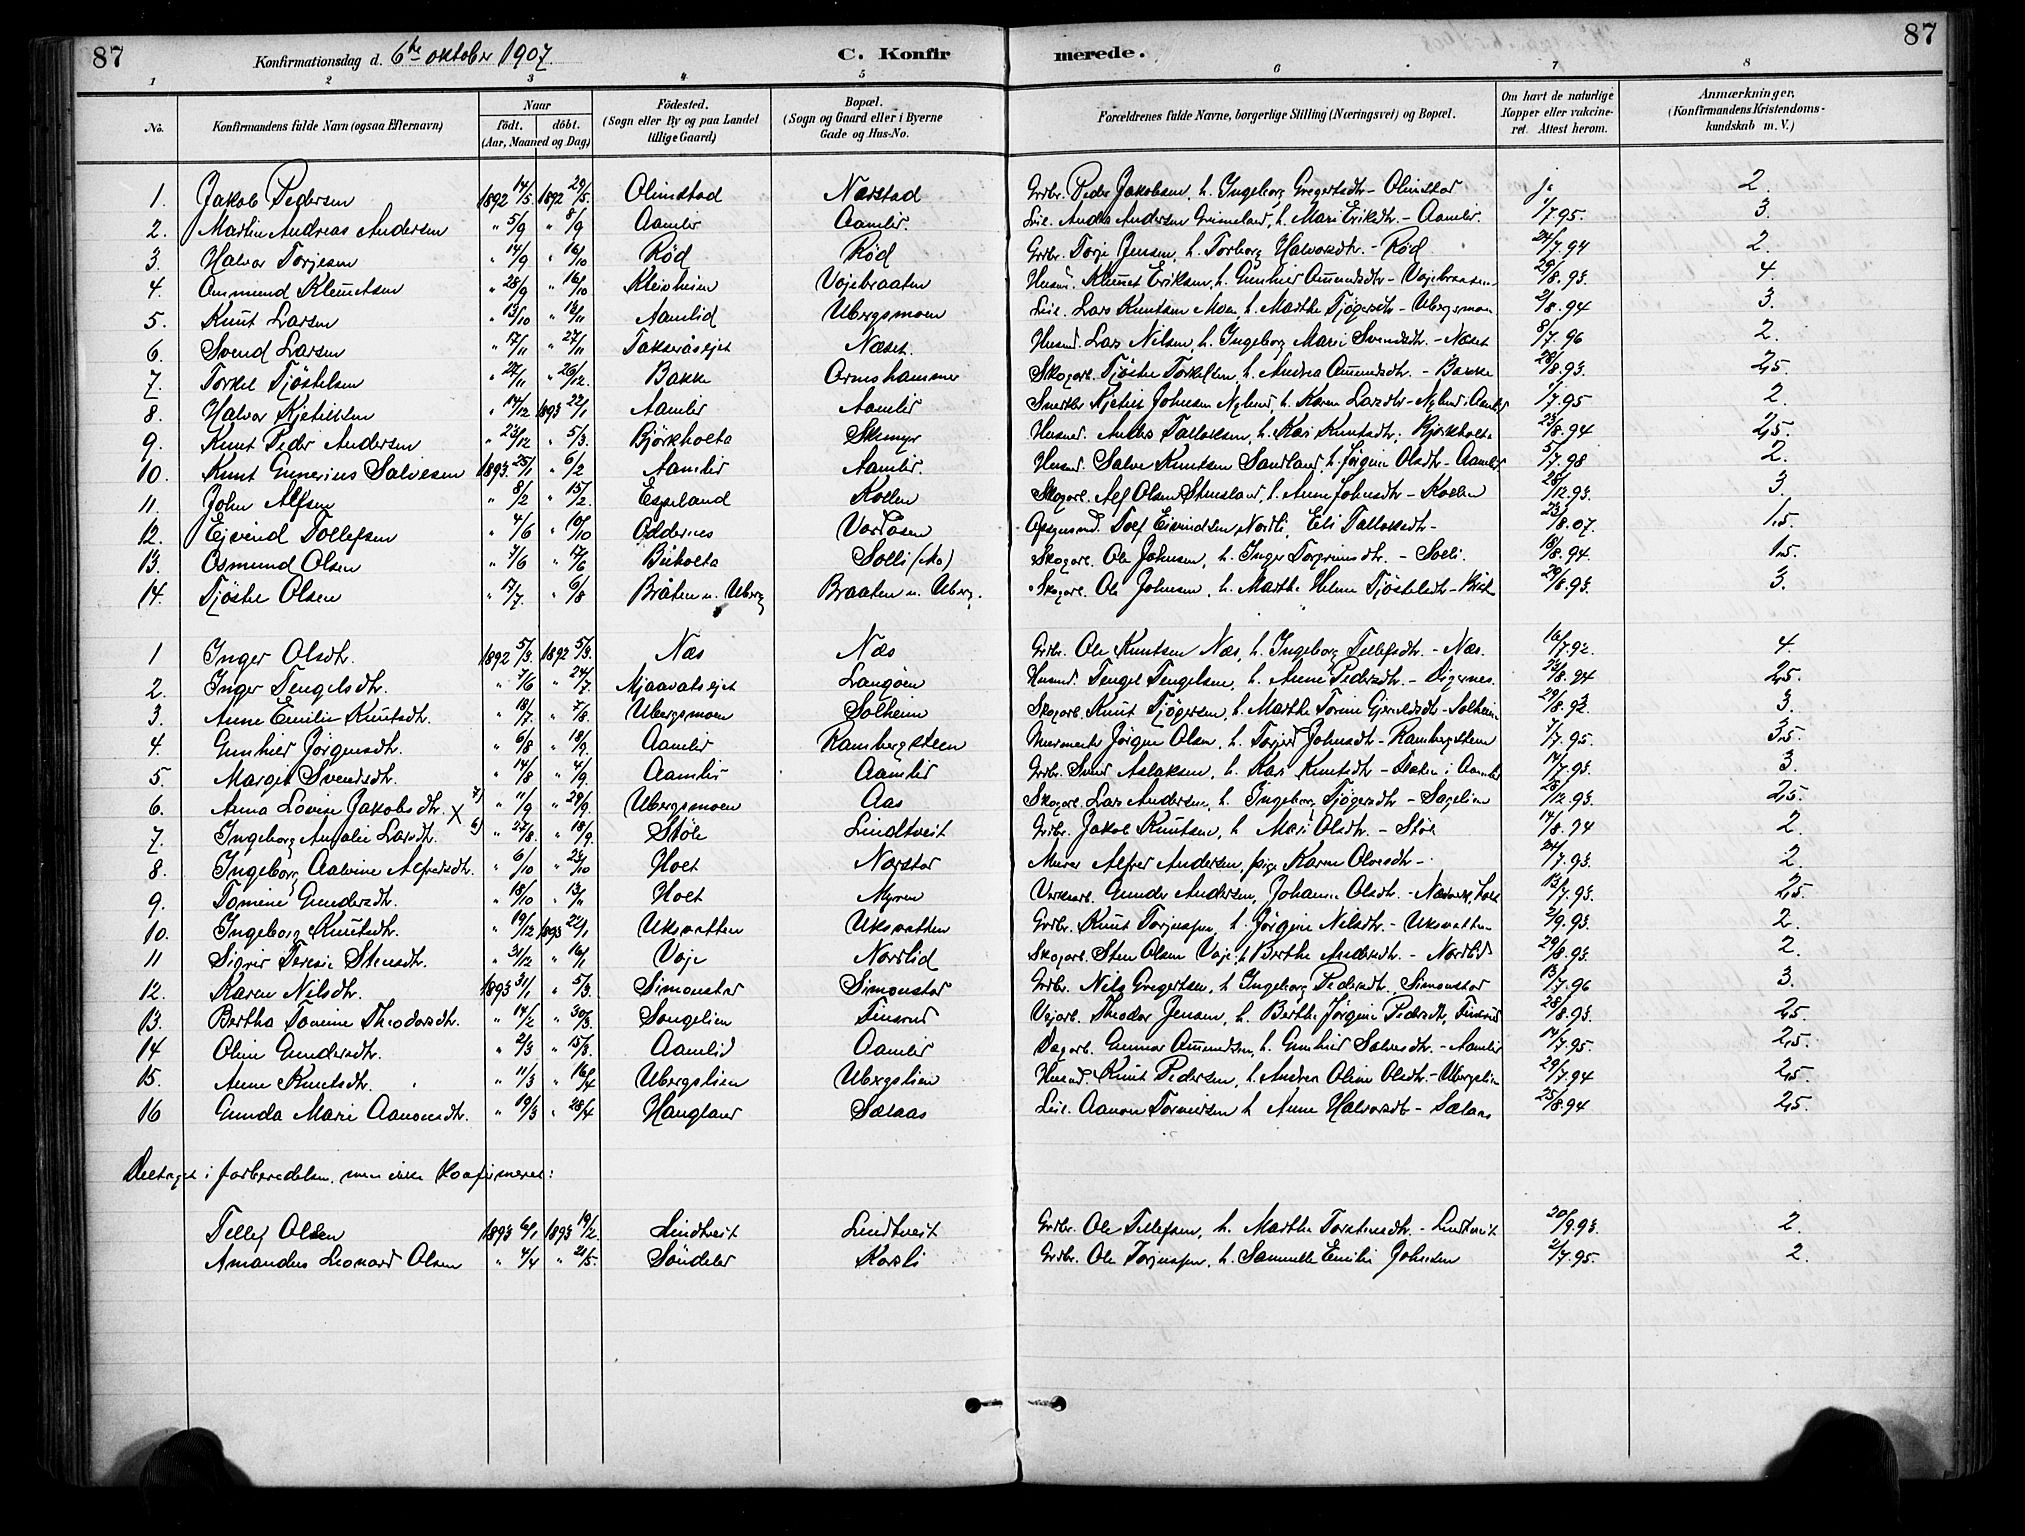 87
Konfirmationsdag d. 6te oktober 1907.
C. Konfirmerede.
87
1 2 3 4 5 6 7 8
No. Konfirmandens fulde Navn (ogsaa Efternavn) Naar födt. döbt. (Aar, Maaned og Dag) Födested. (Sogn eller By og paa Landet tillige Gaard) Bopæl. (Sogn og Gaard eller i Byerne Gade og Hus-No. Forældrenes fulde Navne, borgerlige Stilling (Næringsvei) og Bopæl. Om havt de naturlige Kopper eller vakcineret. Attest herom. Anmærkninger. (Konfirmandens Kristendomskundskab m. V.)
1. Jakob Pedersen 1892 14/5. 1892 29/5. Olimstad Nærstad Grdbr. Peder Jakobsen, h. Ingeborg Gregertsdtr - Olimstad ja 2.
2. Martin Andreas Andersen " 5/9 " 8/9 Aamlir Aamlir. Lei. Andrea Andersen Grimeland, h. Mari Eriksdtr. - Aamlir. 1/7.95. 3.
3. Halvor Torjesen " 14/9 " 16/10 Röd Röd Grdbr. Torje Jensen, h. Torborg Halvorsdtr. - Röd 24/7.94 2.
4. Osmund Klemetsen " 28/9 " 16/10 Kleivheien Vojebraaten Husm. Klemet Eriksen, h. Gunhild Osmundsdtr - Vojebraaten 29/8.93. 4.
5. Knut Larsen " 13/10 " 13/11 Aamlid Ubergsmoen Lei. Lars Knutsen Moen, h. Marthe Tjögersdtr - Ubergsmoen 2/8.94 3.
6. Svend Larsen " 17/11 " 27/11 Takseråsejet Næset. Husmd. Lars Nilsen, h. Ingeborg Marie Svendsdtr. - Næset 8/7.96 2.
7. Torkel Tjöstelsen " 27/11 " 26/12. Bakke Ormshammer Skogarb. Tjöstel Torkelsen, h. Andrea Osmundsdtr. - Bakke 28/8.93. 2,5.
8. Halvor Kjetilsen " 14/12 1893 22/1 Aamlir Aamlir Snedker Kjetil Johnsen Nylund, h. Karen Larsdtr - Nylund i Aamlir 1/7.95 2.
9. Knut Peder Andersen " 23/12 " 5/3. Bjørkholta Skimyr Husmd. Anders Tallaksen, h. Kari Knutsdtr. Bjørkholta 25/8.94 2,5.
10. Knut Gunerius Salvesen 1893. 25/1 " 6/2 Aamlir Aamlir. Husmd. Salve Knutsen Sandland, h. Jörgine Olsdtr - Aamlir 5/7.98 2.
11. John Alfsen " 8/2 " 15/2. Espeland Kollen Skogarb. Alf Olsen Stensland, h. Anne Johnsdtr - Kollen 28/12.93. 3.
12. Ejvind Tollefsen " 4/6 " 10/10 Oddernes Vordåsen Tolf Eivindsen Nordli, Eli Tallaksdtr - 23/8.07. 1,5.
13. Osmund Olsen " 7/6 " 17/6 Birkolta Solli (sko) Skogarb. Ole Johnsen, h. Inger Torgrimsdtr. - Solli. 18/8.94. 1,5.
14. Tjöstel Olsen " 17/7. " 6/8 Bråten u. Uberg Braaten u. Uberg. Skogarb. Ole Johnsen, h. Marthe Helene Tjöstelsdtr - 29/8.93. 3.
1 Inger Olsdtr. 1892 5/3. 1892 5/3. Næs Næs Grdbr. Ole Knutsen Næs, h. Ingeborg Tellefsdtr. - Næs. 16/7.92. 4.
2. Inger Tengelsdtr. " 7/6 " 24/7. Mjaavatsejet Langöen Husmd. Tengel Tengelsen, h. Anne Pedersdtr. - Digernes. 23/8.94 2,5.
3. Anne Emilie Knutsdtr. " 18/7. " 7/8. Ubergsmoen Solheim Skogarb. Knut Tjögersen, h. Marthe Torine Gjeruldsdtr - Solheim 29/8.93. 3.
4. Gunhild Jörgensdtr. " 6/8 " 18/9. Aamlir Rambergsteen Murmester Jörgen Olsen, h. Torjerd Johnsdtr - Rambergsteen 7/7.95. 3,5.
5. Marget Svendsdtr. " 14/8 " 4/9. Aamlir Aamlid Grdbr. Svend Aslaksen, h. Kari Knutsdtr - i Aamlir 14/7.93. 3.
6. Anna Lovise Jakobsdtr. X 7) " 11/9 " 29/9. Ubergsmoen Aas Skogarb. Lars Andersen, h. Ingeborg Tjögersdtr - Sagelien 28/12.93. 2,5.
7. Ingeborg Amalie Larsdtr. 6) " 27/8. " 18/9. Støle Lindtveit Grdbr. Jakob Knutsen, h. Mari Olsdtr. - Støle 14/8.94 2.
8. Ingeborg Aalvine Alfredsdtr. " 6/10 " 23/10 Holt Nærstad Murer Alfred Andersen, pige Karen Olsdtr - 24/7.93. 2.
9. Tomine Gundersdtr. " 18/10 " 13/11 Holt Myren Verksarb. Gunder Andersen, Johanne Olsdtr. - Næsverk, Holt 13/7.93. 2,5.
10. Ingeborg Knutsdtr. " 19/12 1893 22/1 Uksvatten Uksvatten Grdbr. Knut Torjussen, h. Jörgine Nilsdtr. - Uksvatten 2/9.93. 2.
11 Sigrid Teresie Stensdtr. " 31/12 " 16/1 Voje Nordlid Skogarb. Sten Olsen Voje, h. Berthe Andersdtr. - Nordlid 29/8.93. 2.
12. Karen Nilsdtr. 1893 31/1 " 5/3. Simonstad Simonstad Grdbr. Nils Gregertsen, h. Ingeborg Pedersdtr, Simonstad 13/7.96 3.
13. Bertha Tomine Theodorsdtr. " 14/2 " 30/3. Songelien Finsrud Vejarb. Theodor Jensen, h. Berthe Jörgine Pedersdtr, Finsrud 28/8.93. 2,5.
14 Oline Gundersdtr. " 2/3 " 15/3. Aamlid Aamlir Dagarb. Gunnar Osmundsen, h. Gunhild Salvesdtr. - Aamlir 14/7.95. 2,5.
15. Anne Knutsdtr. " 11/3 " 16/4 Ubergslien Ubergslien Husmd. Knut Pedersen, h. Andrea Oline Olsdtr. - Ubergslien 29/7.94 2,5.
16 Gunda Marie Aanonsdtr. " 19/3 " 28/4 Haugland Sælaas Lei. Aanon Tormodsen h. Anne Halvorsdtr - Sælaas 25/8.94 2,5.
Deltaget i forberedelsen, men ikke konfirmeret:
Tellef Olsen 1893 6/1 1893 19/2. Lindtveit Lindtveit Grdbr. Ole Tellefsen, h. Marthe Torstensdtr. - Lindtveit 20/9.93. 2.
Amandus Leonard Olsen " 4/4 " 21/5. Söndeled Korsli Grdbr. Ole Torjussen, h. Samuelle Emilie Johnsen 2/7.95. 2.